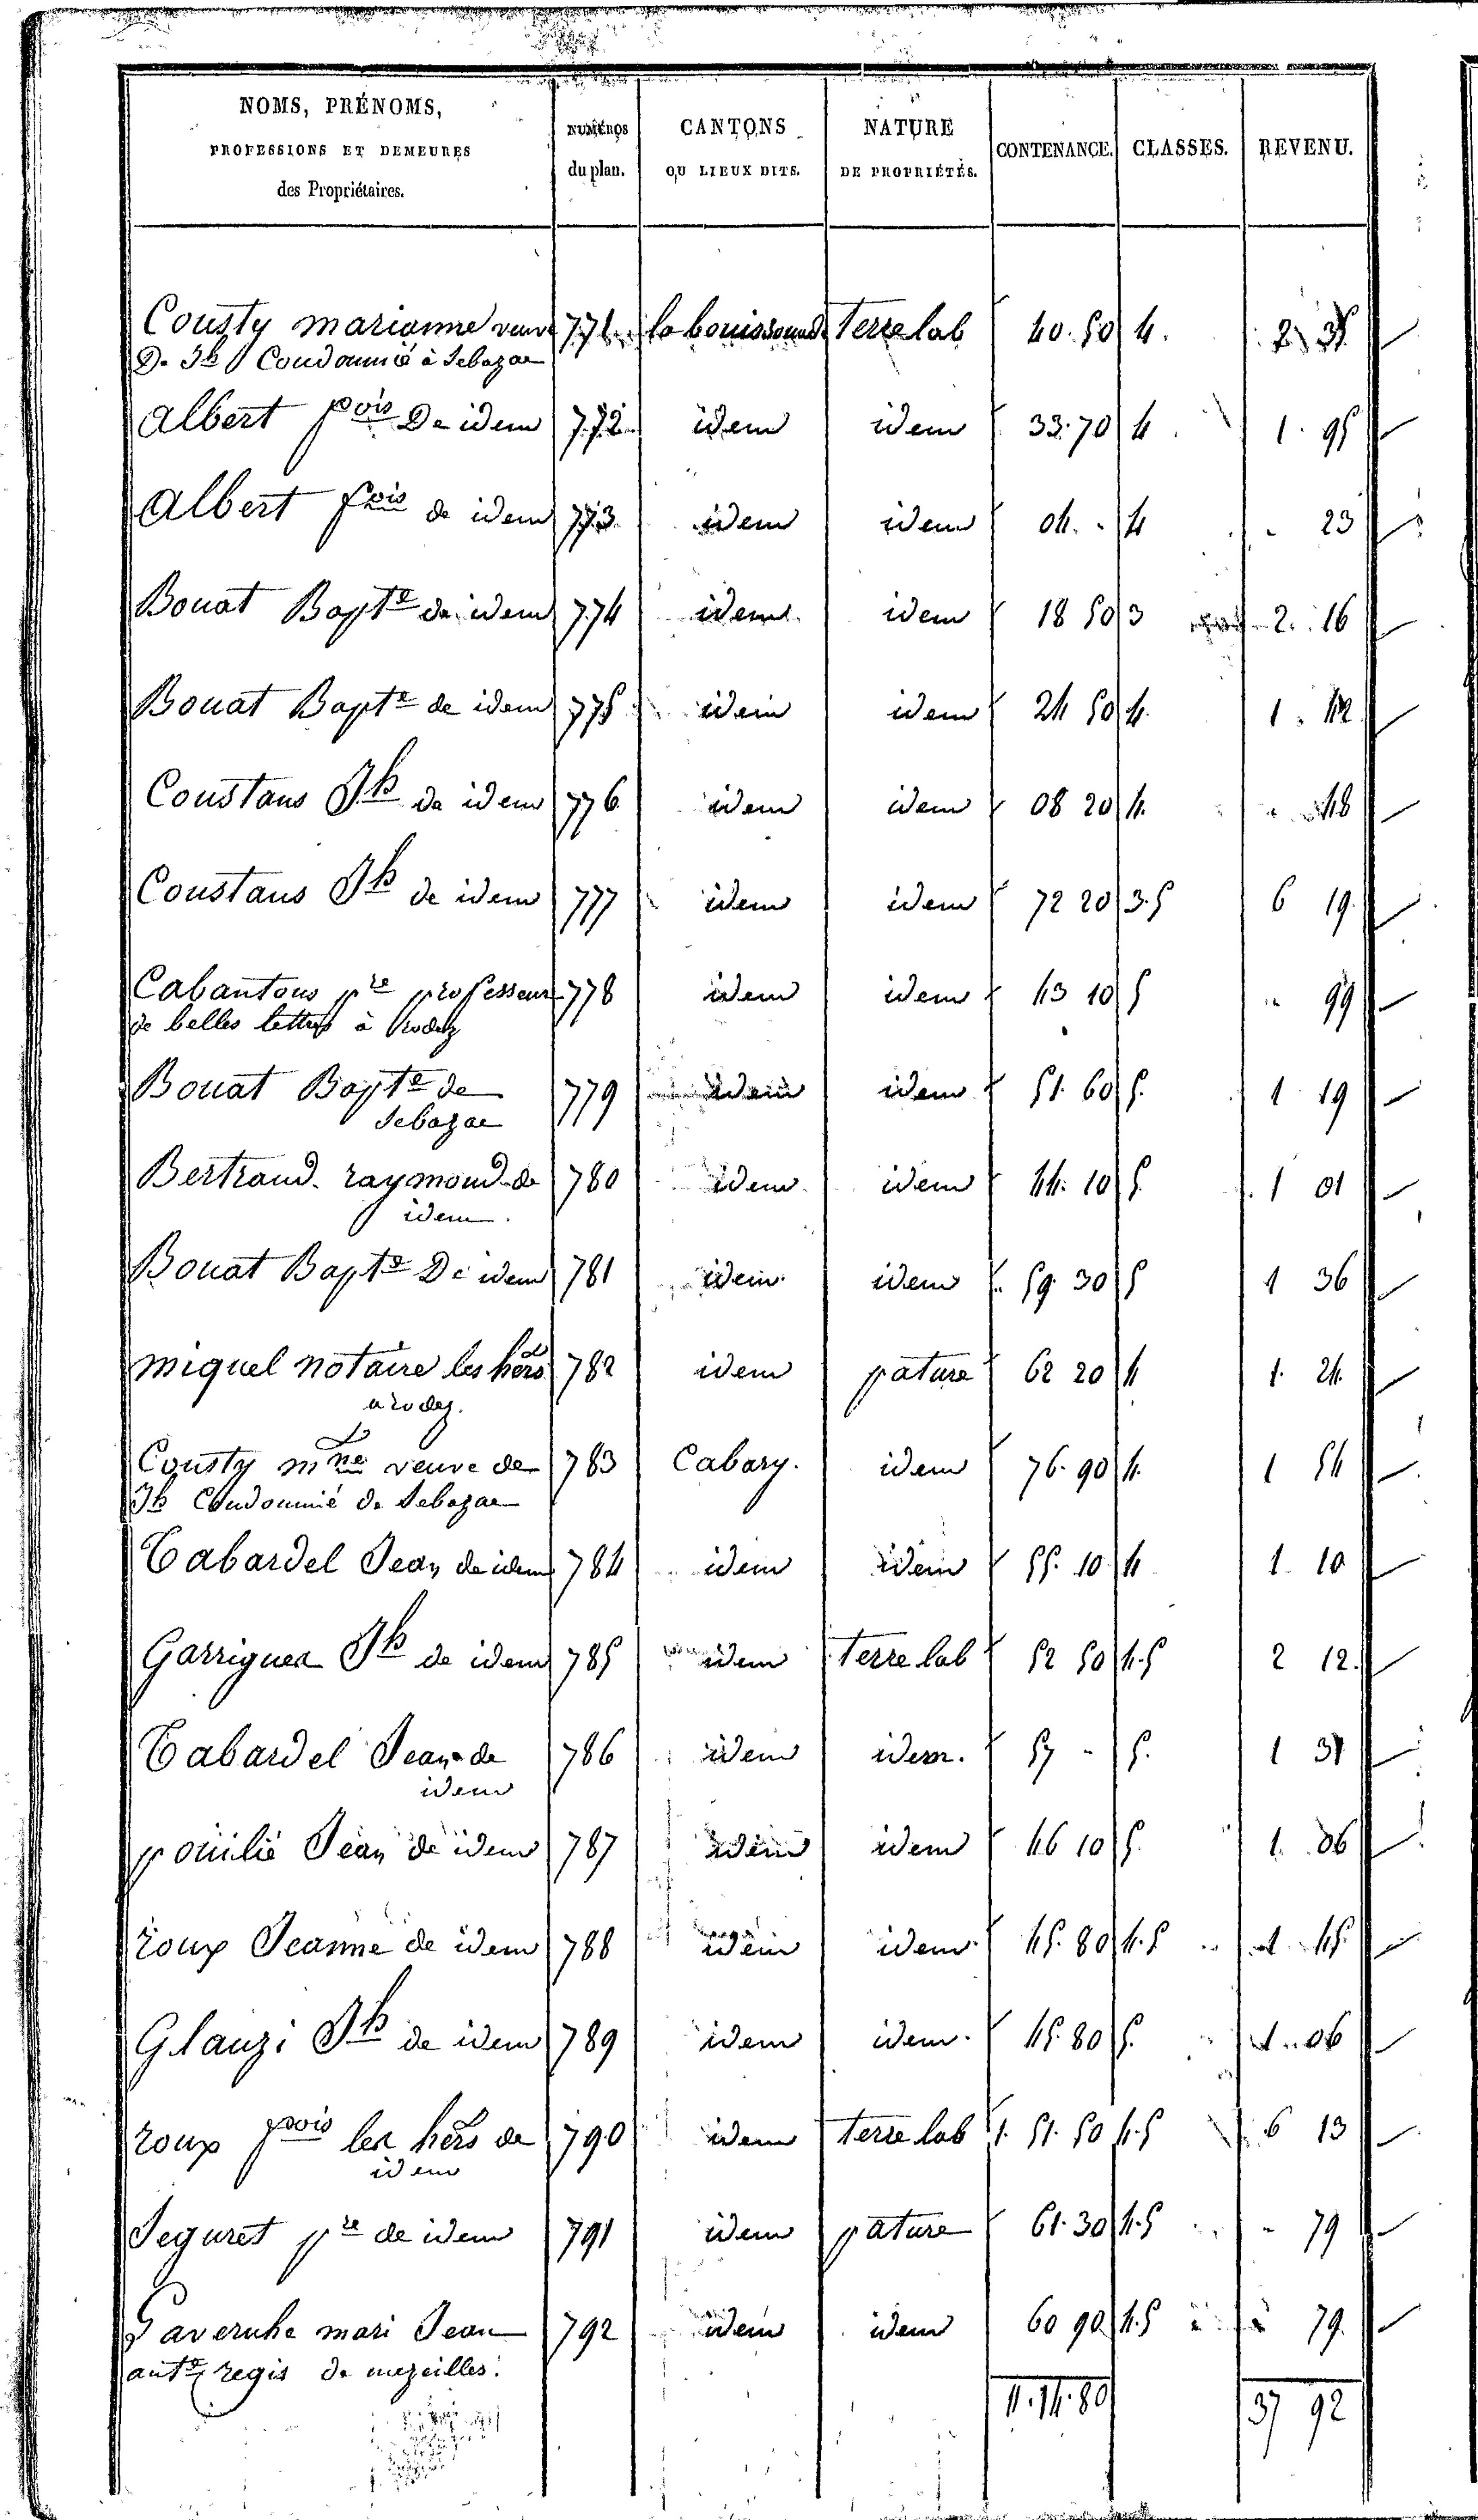 NOMS, PRÉNOMS,
PROFESSIONS ET DEMEURES
des Propriétaires.
NUMÉROS
du plan.
CANTONS
OU LIEUX DITS.
NATURE
DE PROPRIÉTÉS.
CONTENANCE.
CLASSES.
REVENU.
Cousty marianne veuve 771 la bouissounade terre lab 40. 50 4. 2 35
D. Jh Coudoumié à Sebazac
Albert fcois De idem 772 idem idem 33. 70 4 1. 95
Albert fcois de idem 773 idem idem 04. - 4 - 23
Bouat Bapte de idem 774 idem idem 18 50 3 2. 16
Bouat Bapte de idem 775 idem idem 24 50 4. 1. 42
Coustans Jh de idem 776 idem idem 08 20 4. 48
Coustans Jh de idem 777 idem idem 72 20 3.5 6 19
Cabantous pre professeur 778 idem idem 43 10 5 " 99
de belles lettres à Rodez
Bouat Bapte de 779 idem idem 51. 60 5. 1 19
Sebazac
Bertrand raymond de 780 idem idem 44. 10 5. 1 01
idem.
Bouat Bapte De idem 781 idem idem 59. 30 5 1 36
miquel notaire les hers 782 idem pature 62 20 4 1. 24
a rodez.
Cousty mne veuve de 783 Cabary. idem 76. 90 4. 1 54
Jh Coudoumié de Sebazac
Tabardel Jean de idem 784 idem idem 55. 10 4 1. 10
Garrigues Jh de idem 785 idem terre lab 52 50 4.5 2 12.
Tabardel Jean de 786 idem idem. 57 - 5. 1 31
idem
pouilié Jean de idem 787 idem idem 46 10 5. 1. 06
roux Jeanne de idem 788 idem idem 45. 80 4.5 1. 45
Glauzi Jh de idem 789 idem idem. 45. 80 5. 1. 06
roux fcois les hers de 790 idem terre lab 1. 51. 50 4.5 6 13
idem
Seguret pre de idem 791 idem pature 61. 30 4.5 - 79
mari Jean 792 idem idem 60 90 4.5 79
ante regis de mezeilles.
11. 14. 80 37 92